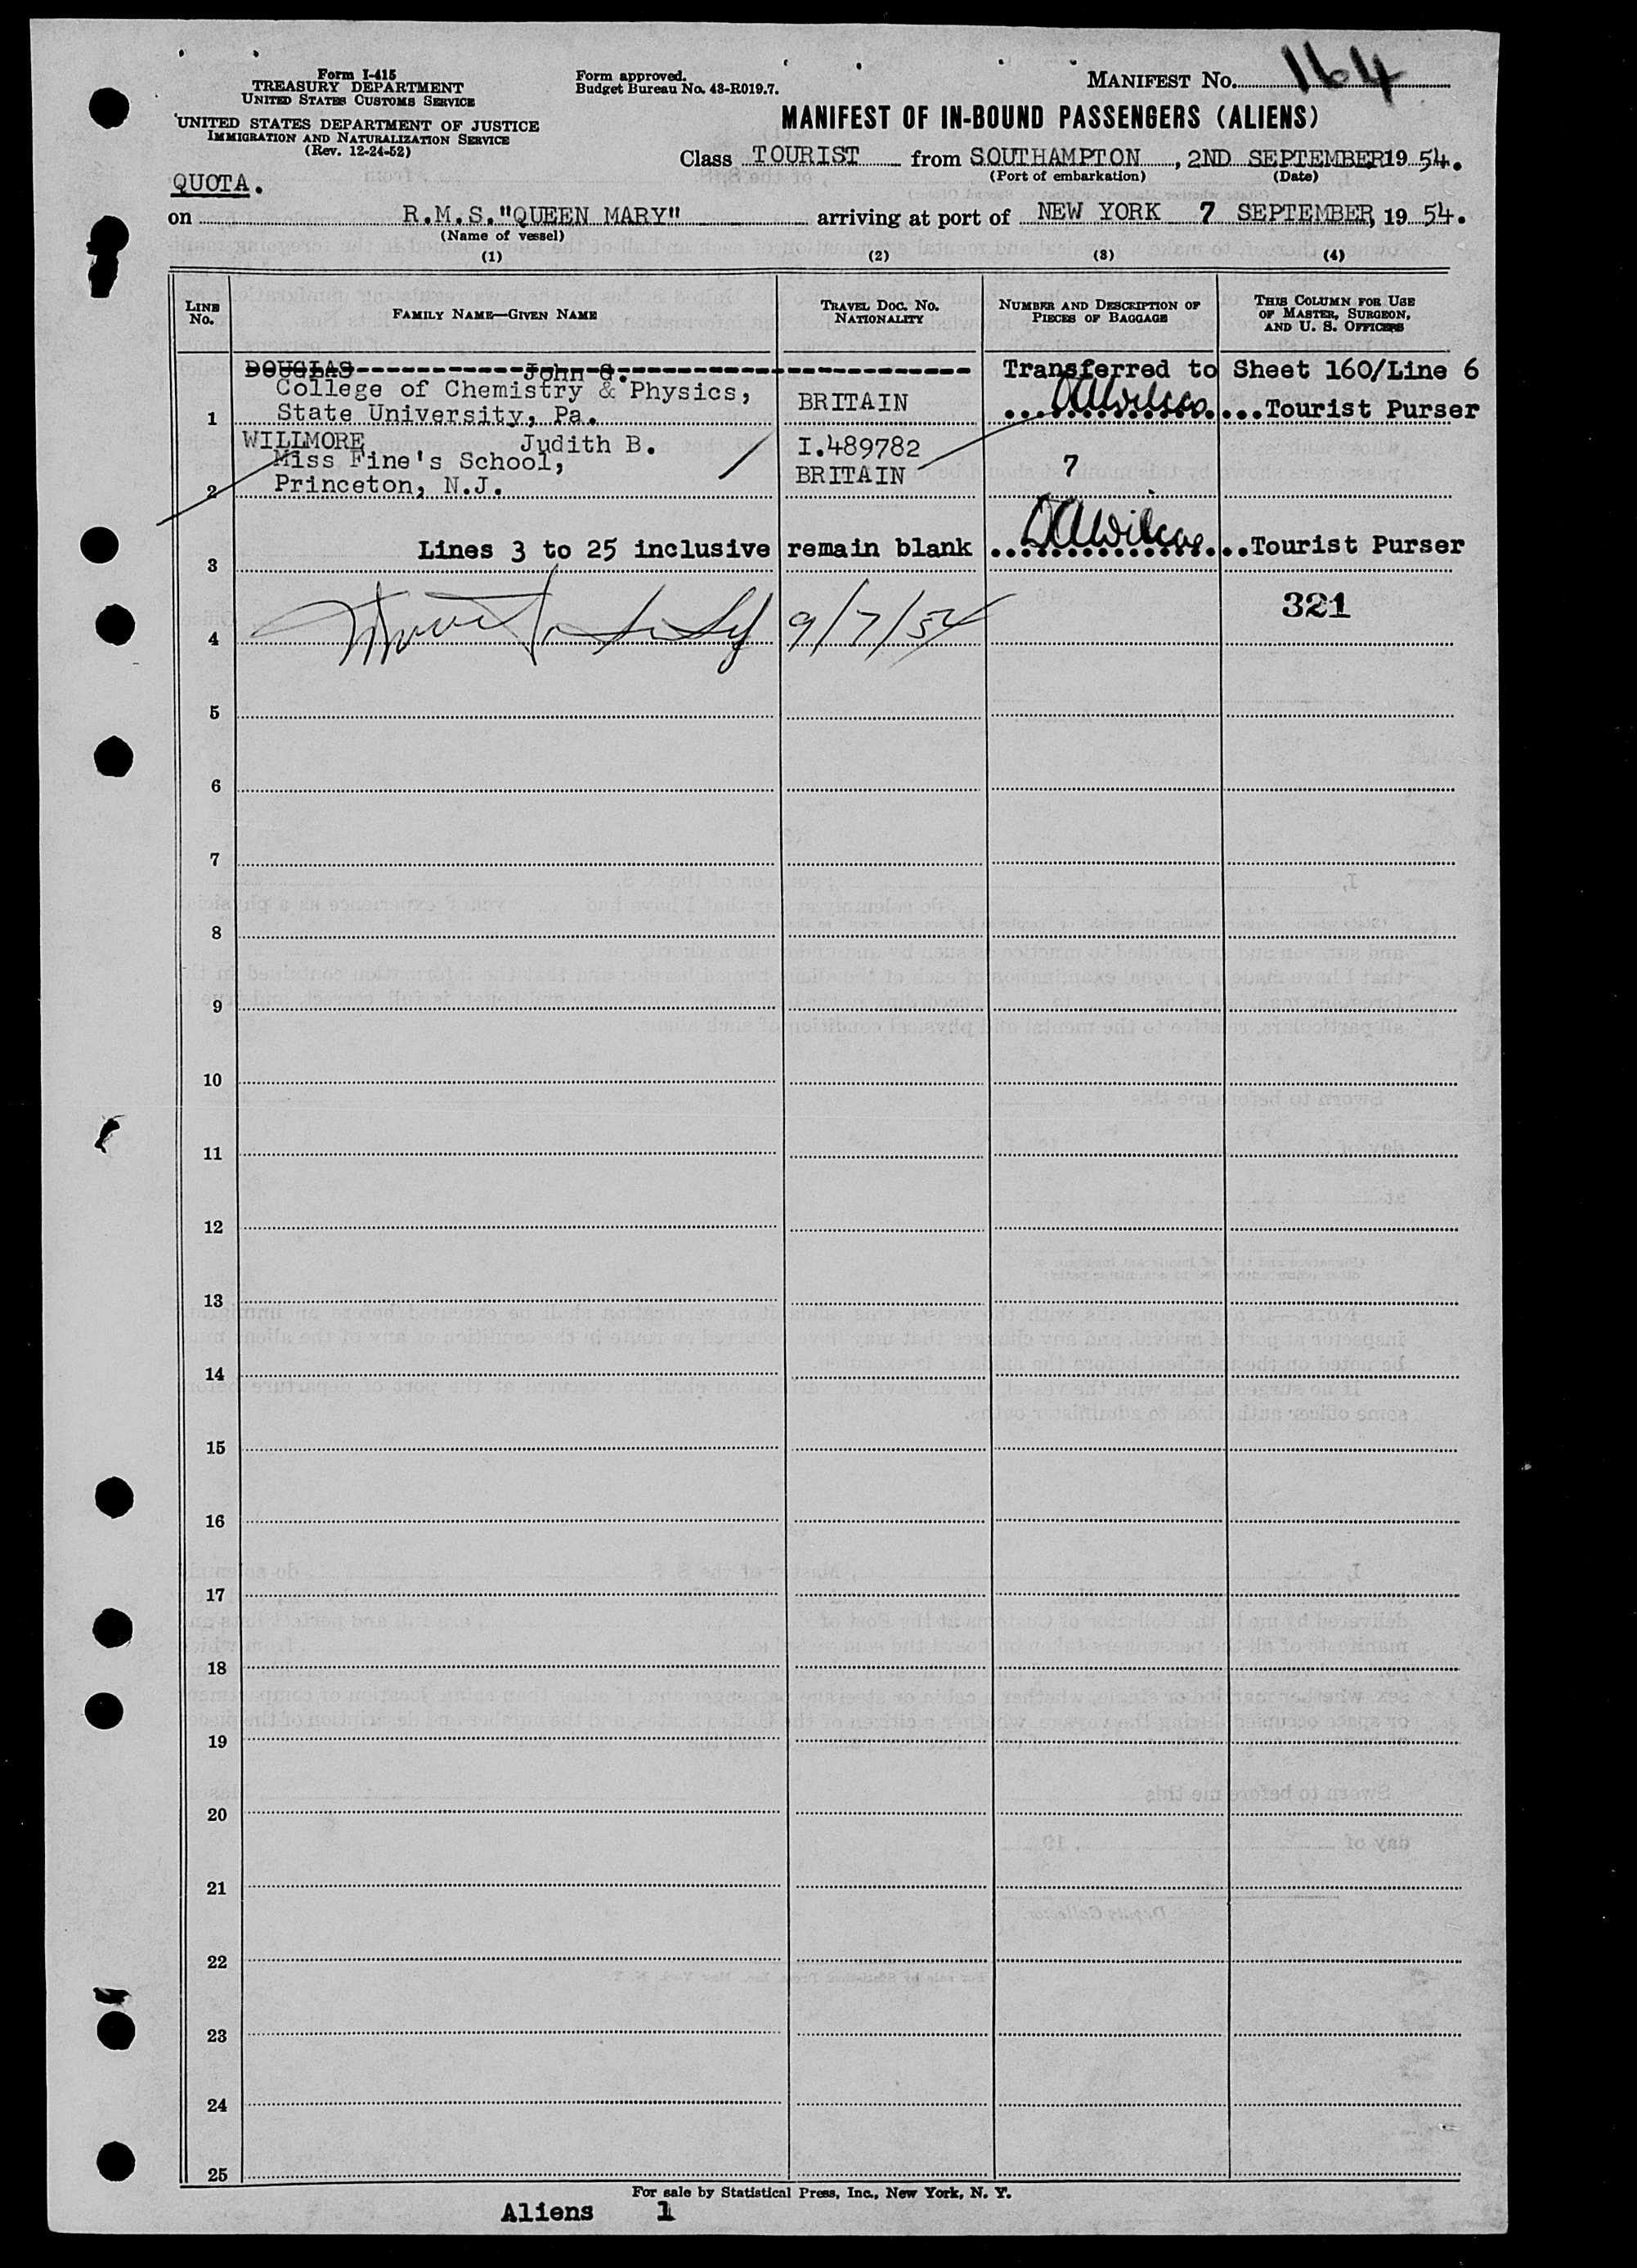 Form I-415
TREASURY DEPARTMENT
UNITED STATES CUSTOMS SERVICE
UNITED STATES DEPARTMENT OF JUSTICE
IMMIGRATION AND NATURALIZATION SERVICE
(Rev. 12-24-52)
Form approved.
Budget Bureau No. 43-R019.7.
MANIFEST NO. 164
MANIFEST OF IN-BOUND PASSENGERS (ALIENS)
Class TOURIST from SOUTHAMPTON, 2ND SEPTEMBER 19 54.
(Port of embarkation) (Date)
QUOTA.
on R.M.S."QUEEN MARY" arriving at port of NEW YORK 7 SEPTEMBER, 19 54.
(Name of vessel)
(1) (2) (3) (4)
LINE No. FAMILY NAME—GIVEN NAME TRAVEL DOC. NO. NATIONALITY NUMBER AND DESCRIPTION OF PIECES OF BAGGAGE THIS COLUMN FOR USE OF MASTER, SURGEON, AND U. S. OFFICERS
DOUGLAS John G. Transferred to Sheet 160/Line 6
College of Chemistry & Physics, BRITAIN
1 State University, Pa. DAWilcox ...Tourist Purser
WILLMORE Judith B. I.489782
Miss Fine's School, BRITAIN 7
2 Princeton, N.J.
Lines 3 to 25 inclusive remain blank DAWilcox ..Tourist Purser
3
4 9/7/54 321
5
6
7
8
9
10
11
12
13
14
15
16
17
18
19
20
21
22
23
24
25
For sale by Statistical Press, Inc., New York, N. Y.
Aliens 1